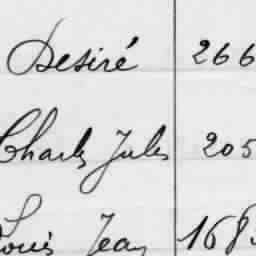 Desiré 266
Charles Jules 205
Louis Jean 168